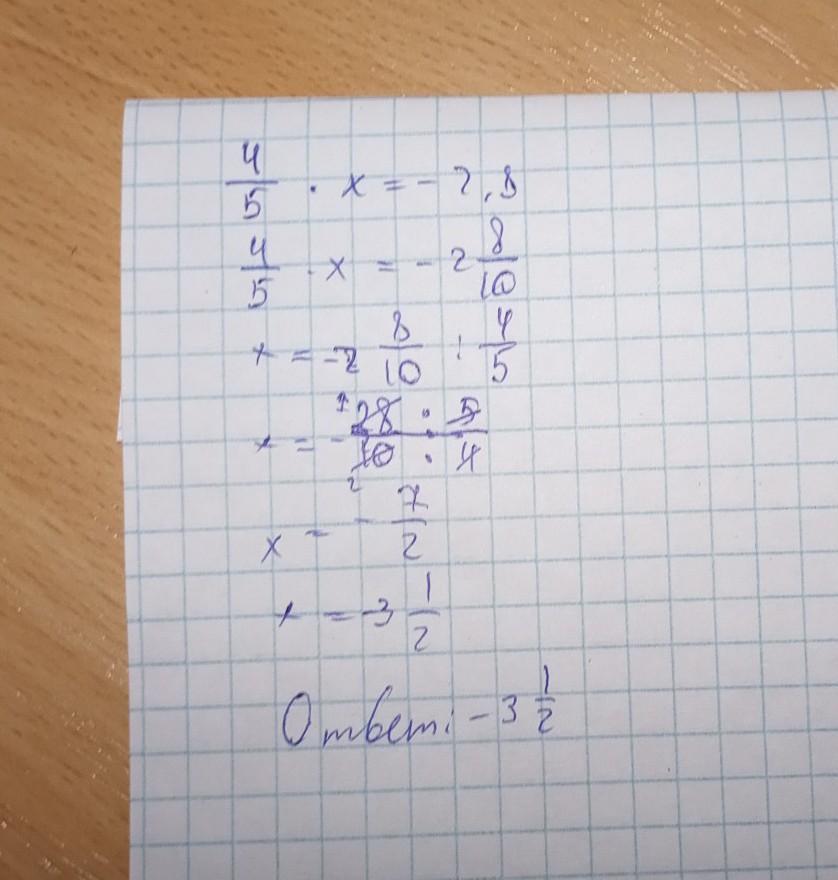 4/5 · x = - 2,8
4/5 · x = - 2 8/10
x = -2 8/10 : 4/5
x = - 28 · 5 / 10 · 4
x = - 7/2
x = -3 1/2
Ответ: -3 1/2